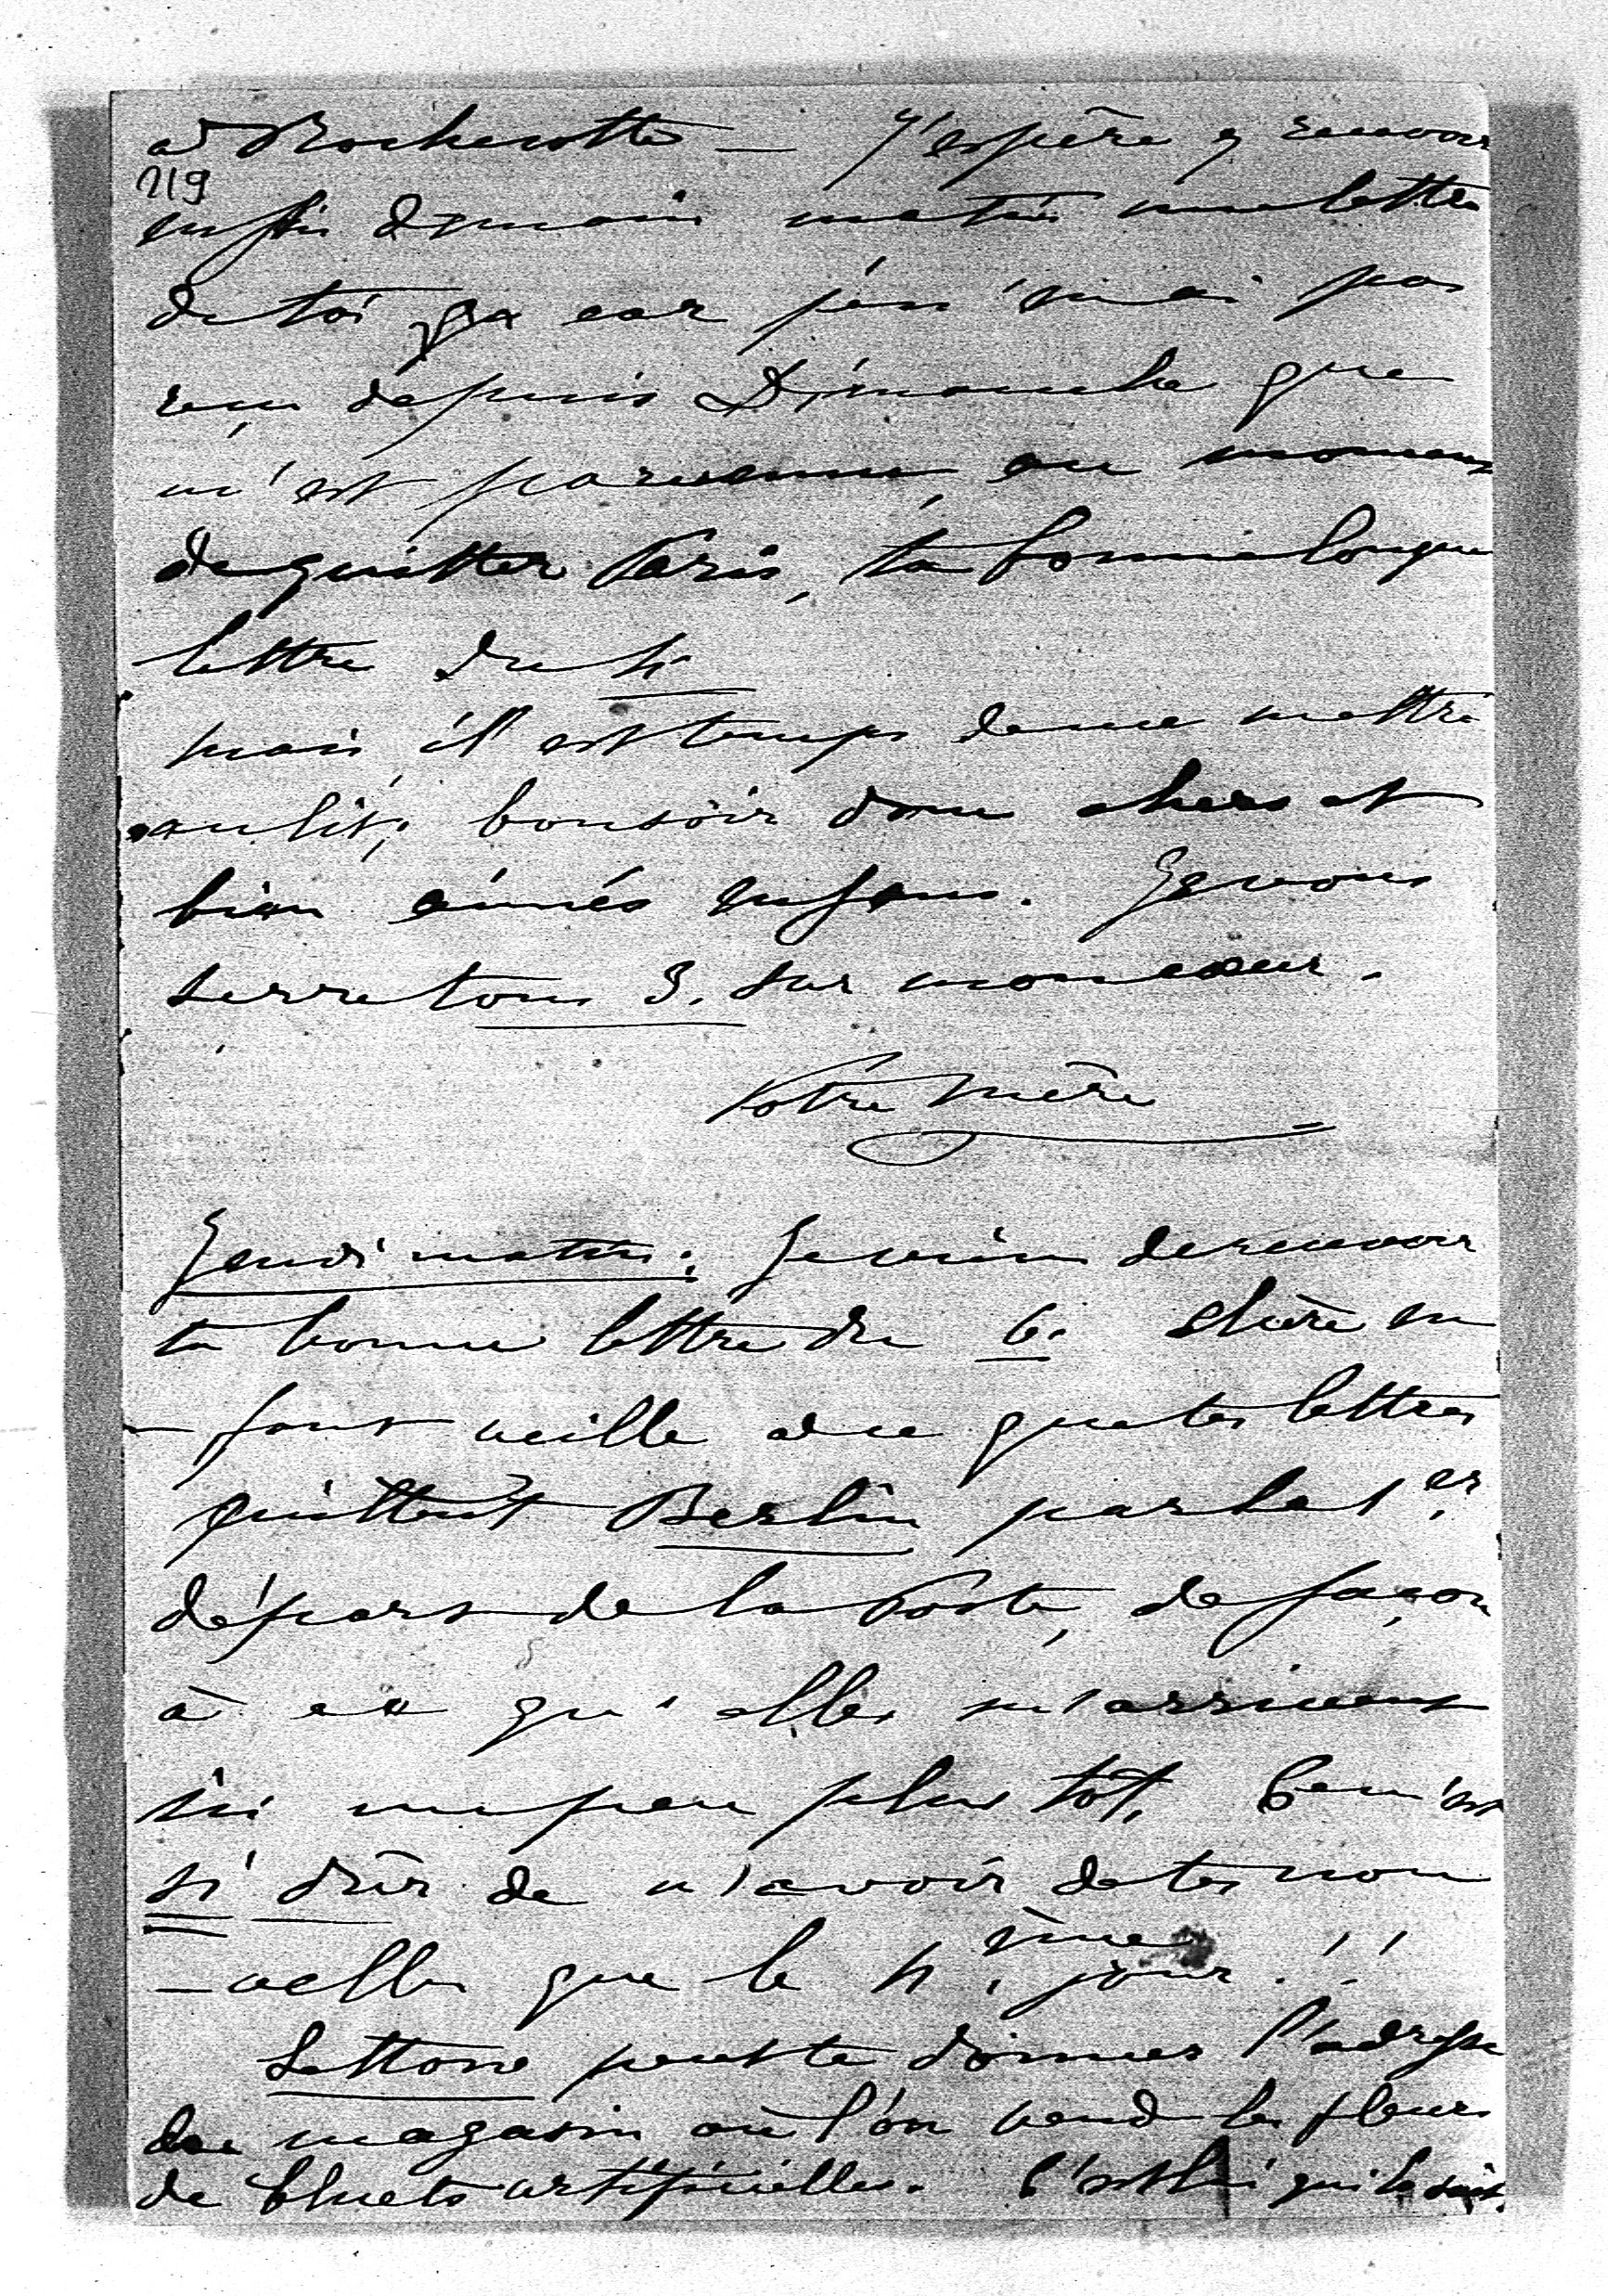 à Rochecotte — J'espère y recevoir
119
enfin demain matin une lettre
de toi car je n'en ai pas
reçu depuis Dimanche que
m'est parvenue, au moment
de quitter Paris, ta bonne longue
lettre du 4
mais il est temps de me mettre
au lit; bonsoir donc chers et
bien aimés enfans. Je vous
serre tous 3. sur mon cœur.
Votre mère
Jeudi matin. Je viens de recevoir
ta bonne lettre du 6. chère en
-fant veille à ce que tes lettres
quittent Berlin par le 1er
départ de la Poste, de façon
à ce qu'elles m'arrivent
ici un peu plus tôt. Ce m'est
si dur de n'avoir de tes nou
-velles que le 4ème jour!!
Lettow peut te donner l'adresse
du magasin où l'on vend les fleurs
de bluets artificielles. C'est lui qui le sait.